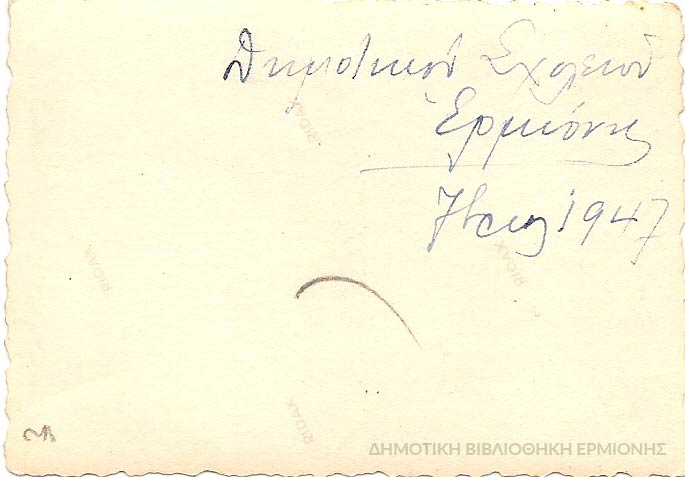 Δημοτικού Σχολείου
Ἑρμιόνης
1947
RIDAX
RIDAX
RIDAX
RIDAX
ΔΗΜΟΤΙΚΗ ΒΙΒΛΙΟΘΗΚΗ ΕΡΜΙΟΝΗΣ